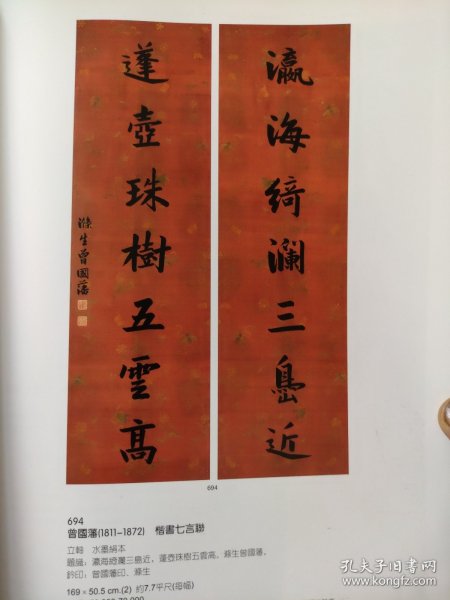 瀛海綺瀾三島近
蓬壺珠樹五雲高
滌生曾國藩
694
694
曾國藩(1811-1872) 楷書七言聯
立軸 水墨絹本
題識：瀛海綺瀾三島近，蓬壺珠樹五雲高。滌生曾國藩。
鈐印：曾國藩印、滌生
169×50.5 cm.(2) 約7.7平尺(每幅)
孔夫子旧书网
book.kongfz.com